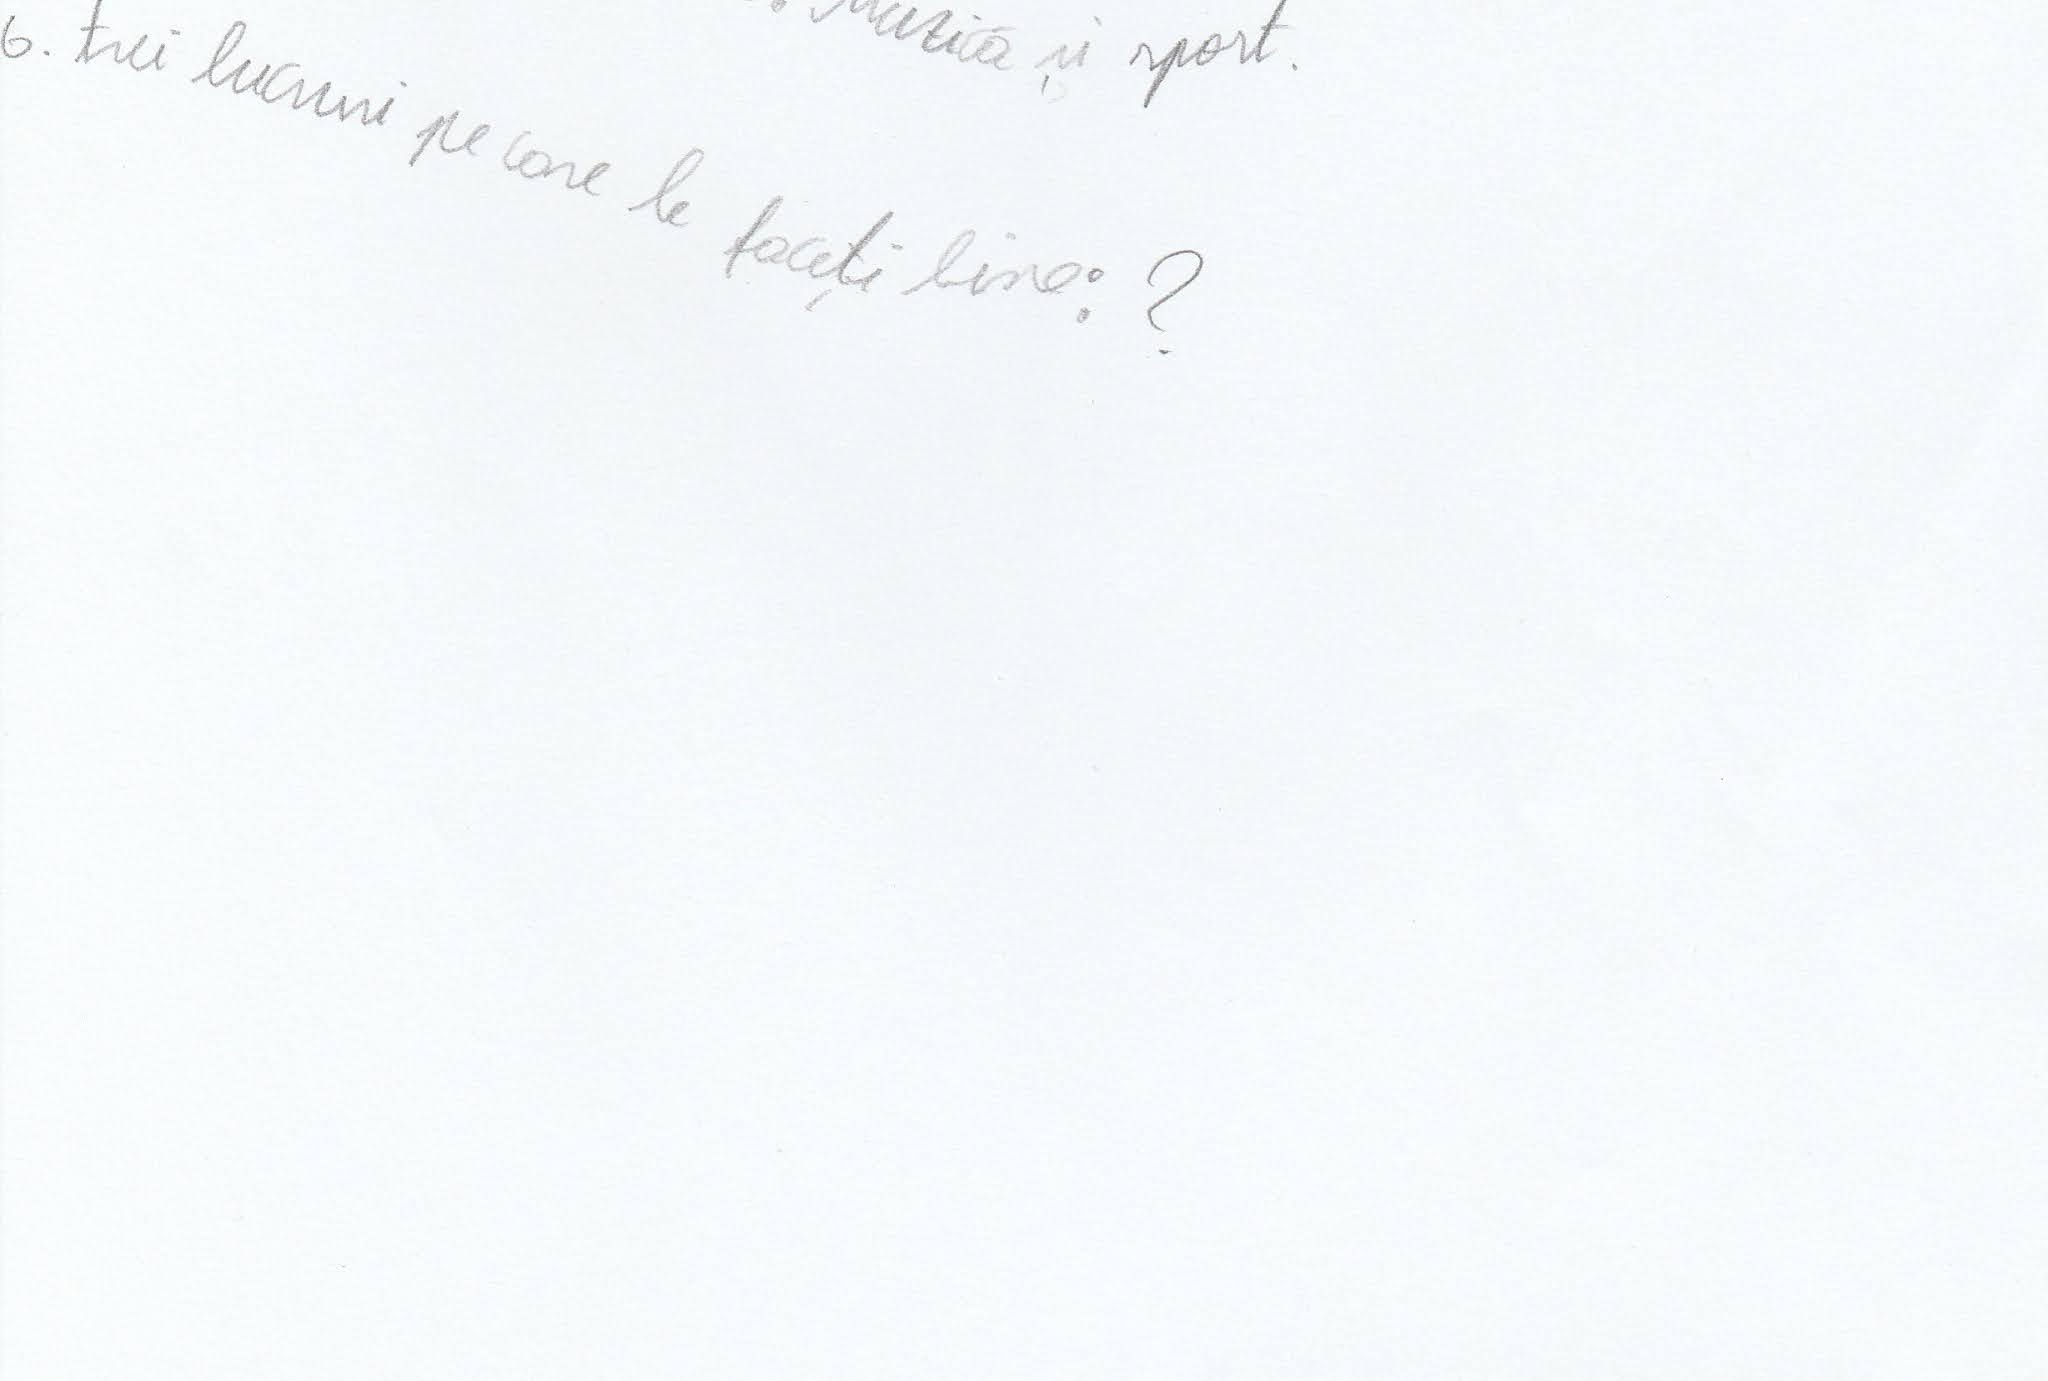 : Muzică și sport.
6. trei lucruri pe care le faceți bine: ?